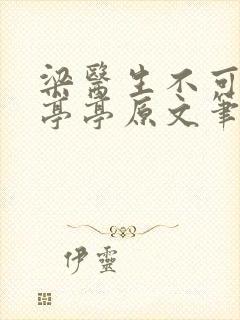 梁醫生不可
亭亭原文筆
伊靈